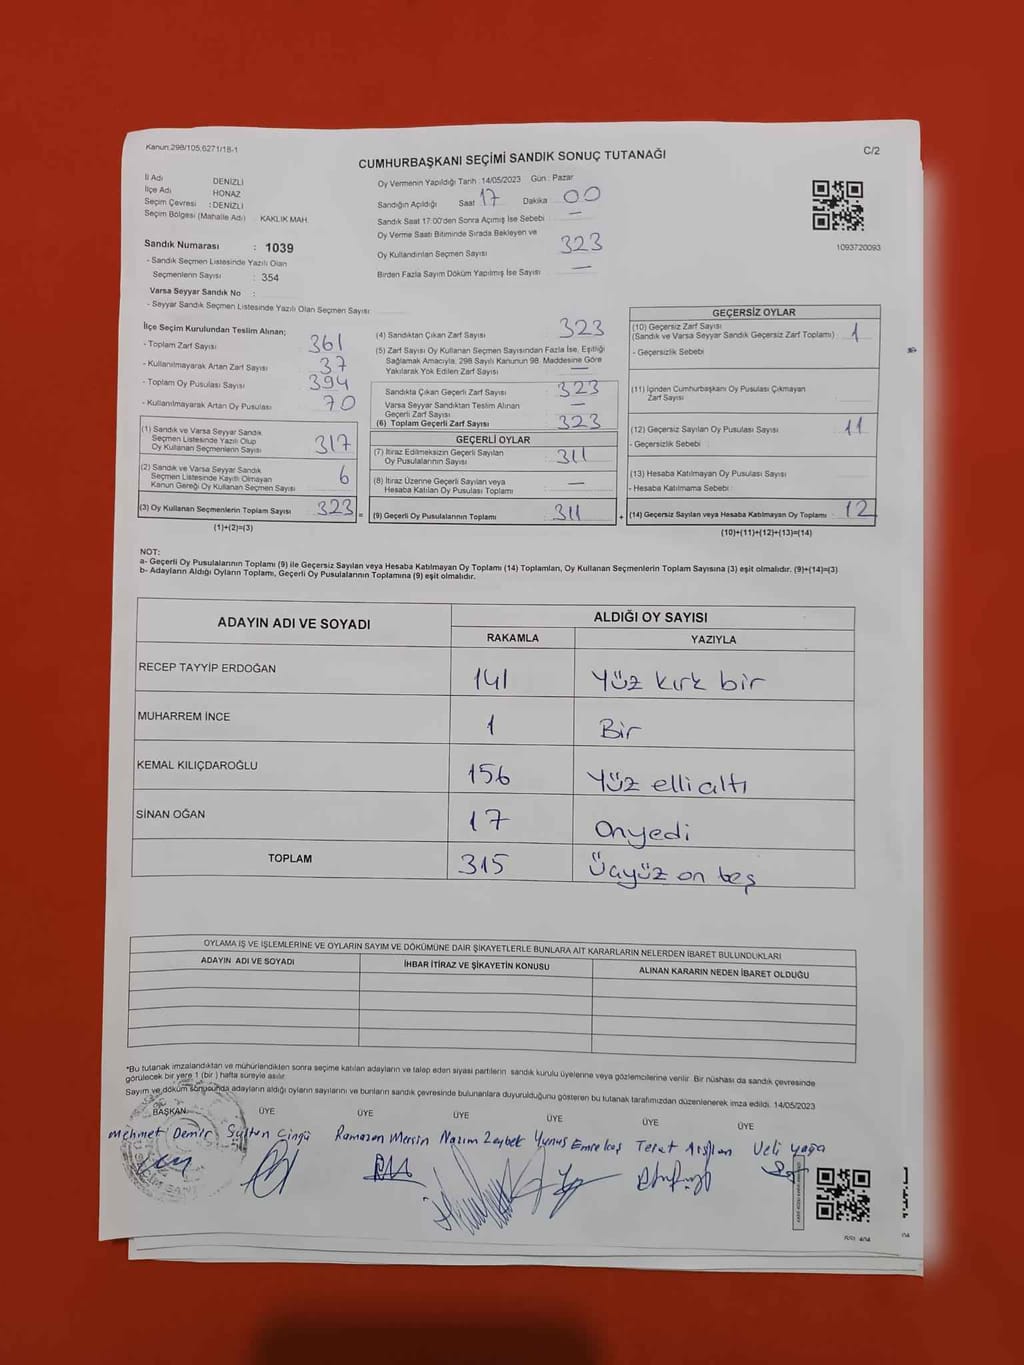 Kanun:298/105,6271/18-1
CUMHURBAŞKANI SEÇİMİ SANDIK SONUÇ TUTANAĞI
C/2
İl Adı DENİZLİ
İlçe Adı HONAZ
Seçim Çevresi : DENİZLİ
Seçim Bölgesi (Mahalle Adı) : KAKLIK MAH.
Oy Vermenin Yapıldığı Tarih : 14/05/2023 Gün : Pazar
Sandığın Açıldığı Saat 17 Dakika 00
Sandık Saat 17:00'den Sonra Açılmış İse Sebebi —
Oy Verme Saati Bitiminde Sırada Bekleyen ve
Oy Kullandırılan Seçmen Sayısı 323
Birden Fazla Sayım Döküm Yapılmış İse Sayısı —
1093720093
Sandık Numarası : 1039
- Sandık Seçmen Listesinde Yazılı Olan
Seçmenlerin Sayısı : 354
Varsa Seyyar Sandık No :
- Seyyar Sandık Seçmen Listesinde Yazılı Olan Seçmen Sayısı:
İlçe Seçim Kurulundan Teslim Alınan;
- Toplam Zarf Sayısı 361
- Kullanılmayarak Artan Zarf Sayısı 37
- Toplam Oy Pusulası Sayısı 394
- Kullanılmayarak Artan Oy Pusulası 70
(1) Sandık ve Varsa Seyyar Sandık
Seçmen Listesinde Yazılı Olup
Oy Kullanan Seçmenlerin Sayısı 317
(2) Sandık ve Varsa Seyyar Sandık
Seçmen Listesinde Kayıtlı Olmayan
Kanun Gereği Oy Kullanan Seçmen Sayısı 6
(3) Oy Kullanan Seçmenlerin Toplam Sayısı 323
(1)+(2)=(3)
(4) Sandıktan Çıkan Zarf Sayısı 323
(5) Zarf Sayısı Oy Kullanan Seçmen Sayısından Fazla İse, Eşitliği
Sağlamak Amacıyla, 298 Sayılı Kanunun 98. Maddesine Göre
Yakılarak Yok Edilen Zarf Sayısı —
Sandıkta Çıkan Geçerli Zarf Sayısı 323
Varsa Seyyar Sandıktan Teslim Alınan
Geçerli Zarf Sayısı —
(6) Toplam Geçerli Zarf Sayısı 323
GEÇERLİ OYLAR
(7) İtiraz Edilmeksizin Geçerli Sayılan
Oy Pusulalarının Sayısı 311
(8) İtiraz Üzerine Geçerli Sayılan veya
Hesaba Katılan Oy Pusulası Toplamı —
= (9) Geçerli Oy Pusulalarının Toplamı 311
GEÇERSİZ OYLAR
(10) Geçersiz Zarf Sayısı
(Sandık ve Varsa Seyyar Sandık Geçersiz Zarf Toplamı) 1
- Geçersizlik Sebebi
(11) İçinden Cumhurbaşkanı Oy Pusulası Çıkmayan
Zarf Sayısı
(12) Geçersiz Sayılan Oy Pusulası Sayısı 11
- Geçersizlik Sebebi
(13) Hesaba Katılmayan Oy Pusulası Sayısı
- Hesaba Katılmama Sebebi :
+ (14) Geçersiz Sayılan veya Hesaba Katılmayan Oy Toplamı 12
(10)+(11)+(12)+(13)=(14)
NOT:
a- Geçerli Oy Pusulalarının Toplamı (9) ile Geçersiz Sayılan veya Hesaba Katılmayan Oy Toplamı (14) Toplamları, Oy Kullanan Seçmenlerin Toplam Sayısına (3) eşit olmalıdır. (9)+(14)=(3)
b- Adayların Aldığı Oyların Toplamı, Geçerli Oy Pusulalarının Toplamına (9) eşit olmalıdır.
ADAYIN ADI VE SOYADI ALDIĞI OY SAYISI
RAKAMLA YAZIYLA
RECEP TAYYİP ERDOĞAN 141 Yüz kırk bir
MUHARREM İNCE 1 Bir
KEMAL KILIÇDAROĞLU 156 Yüz elli altı
SİNAN OĞAN 17 Onyedi
TOPLAM 315 Üçyüz on beş
OYLAMA İŞ VE İŞLEMLERİNE VE OYLARIN SAYIM VE DÖKÜMÜNE DAİR ŞİKAYETLERLE BUNLARA AİT KARARLARIN NELERDEN İBARET BULUNDUKLARI
ADAYIN ADI VE SOYADI İHBAR İTİRAZ VE ŞİKAYETİN KONUSU ALINAN KARARIN NEDEN İBARET OLDUĞU
*Bu tutanak imzalandıktan ve mühürlendikten sonra seçime katılan adayların ve talep eden siyasi partilerin sandık kurulu üyelerine veya gözlemcilerine verilir. Bir nüshası da sandık çevresinde
görülecek bir yere 1 (bir ) hafta süreyle asılır.
Sayım ve döküm sonucunda adayların aldığı oyların sayılarını ve bunların sandık çevresinde bulunanlara duyurulduğunu gösteren bu tutanak tarafımızdan düzenlenerek imza edildi. 14/05/2023
BAŞKAN ÜYE ÜYE ÜYE ÜYE ÜYE ÜYE
Mehmet Demir Sultan Cingü Ramazan Mersin Nazım Zeybek Yunus Emre Koş Terat Arslan Veli Yaşa